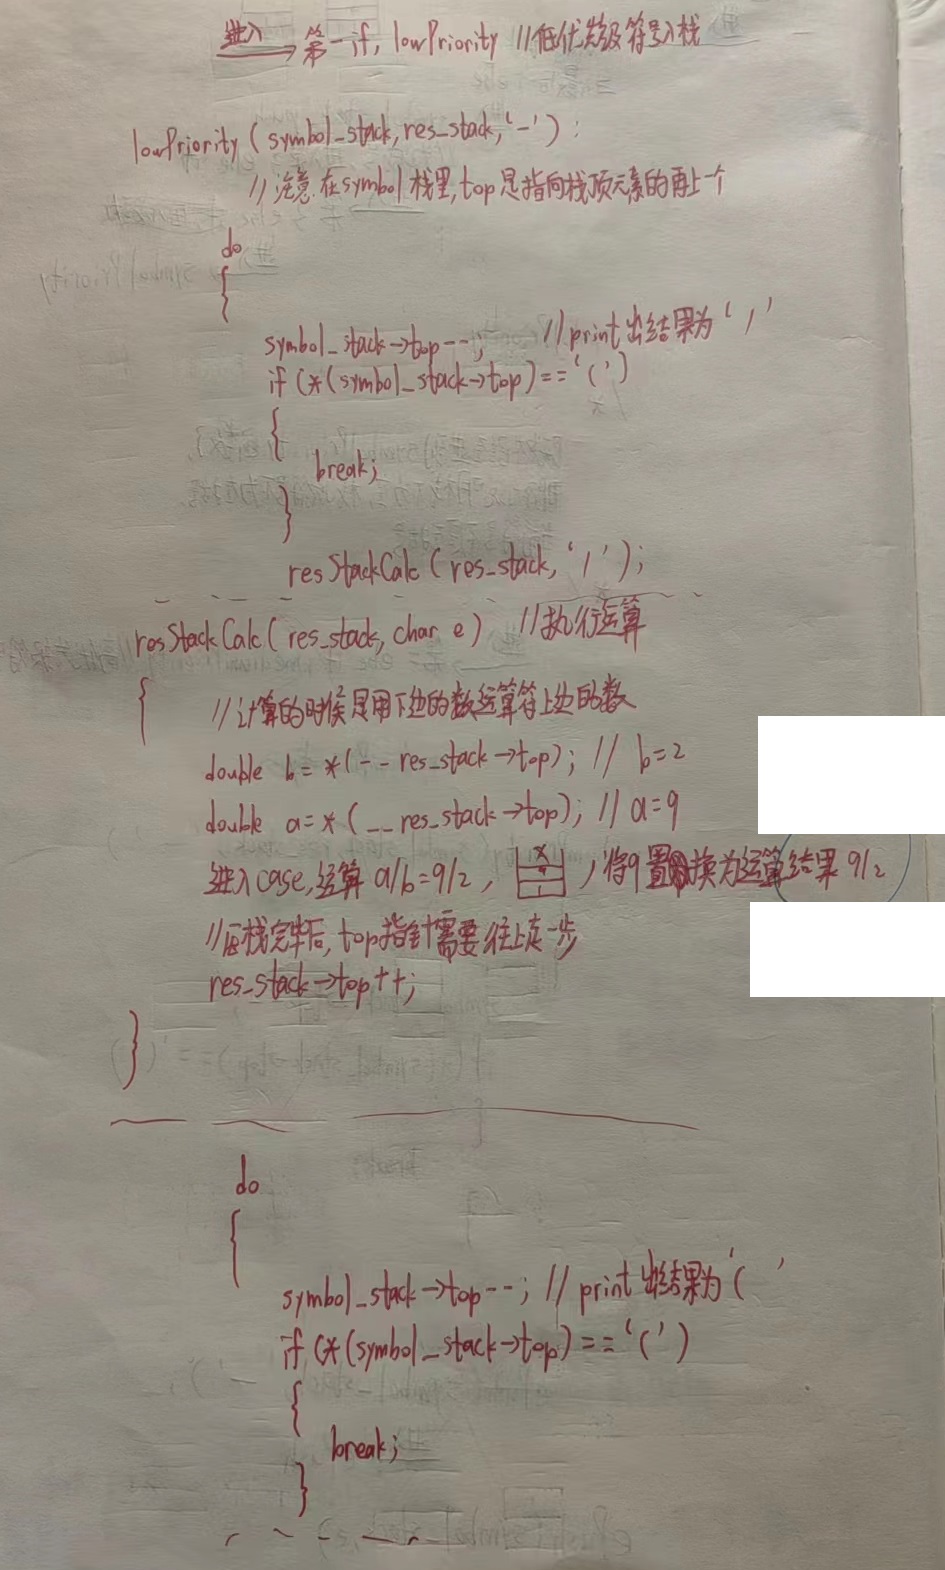 进入 → 第一if, lowPriority //低优先级符号入栈
lowPriority ( symbol_stack, res_stack, '-' ):
// 注意 在symbol栈里, top是指向栈顶元素的再上一个
do
{
symbol_stack→top--; //print出结果为 '/'
if (*(symbol_stack→top) == '(')
{
break;
}
resStackCalc ( res_stack, '/' );
resStackCalc ( res_stack, char e ) //执行运算
{
//计算的时候是用下边的数运算符上边的数
double b = *(-- res_stack→top); // b=2
double a = *(-- res_stack→top); // a=9
进入case, 运算 a/b = 9/2, , 将9置换为运算结果 9/2
//压栈完毕后, top指针需要往上走一步
res_stack→top++;
}
do
{
symbol_stack→top--; // print出结果为'('
if (*(symbol_stack→top) == '(')
{
break;
}